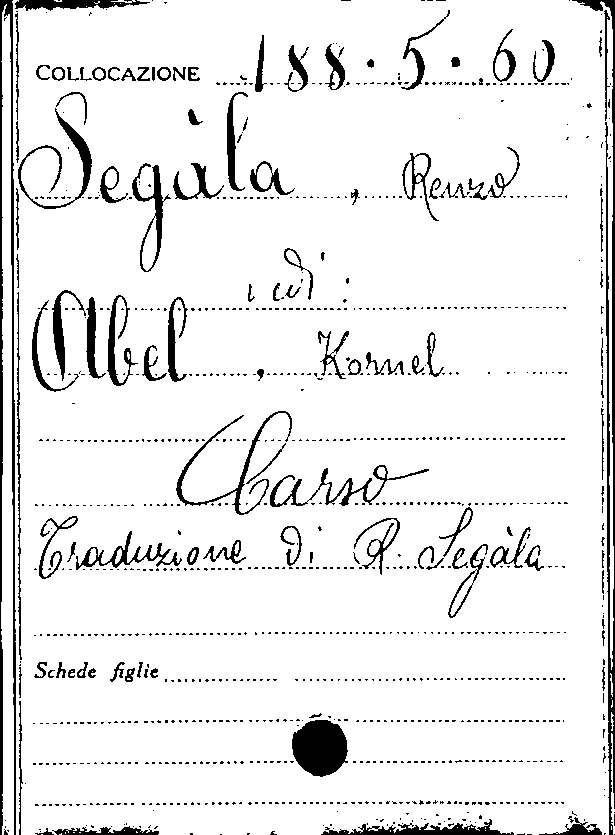 COLLOCAZIONE 188.5.60
Segàla, Renzo
vedi:
Abel, Kornel
Carso
Traduzione di R. Segàla
Schede figlie